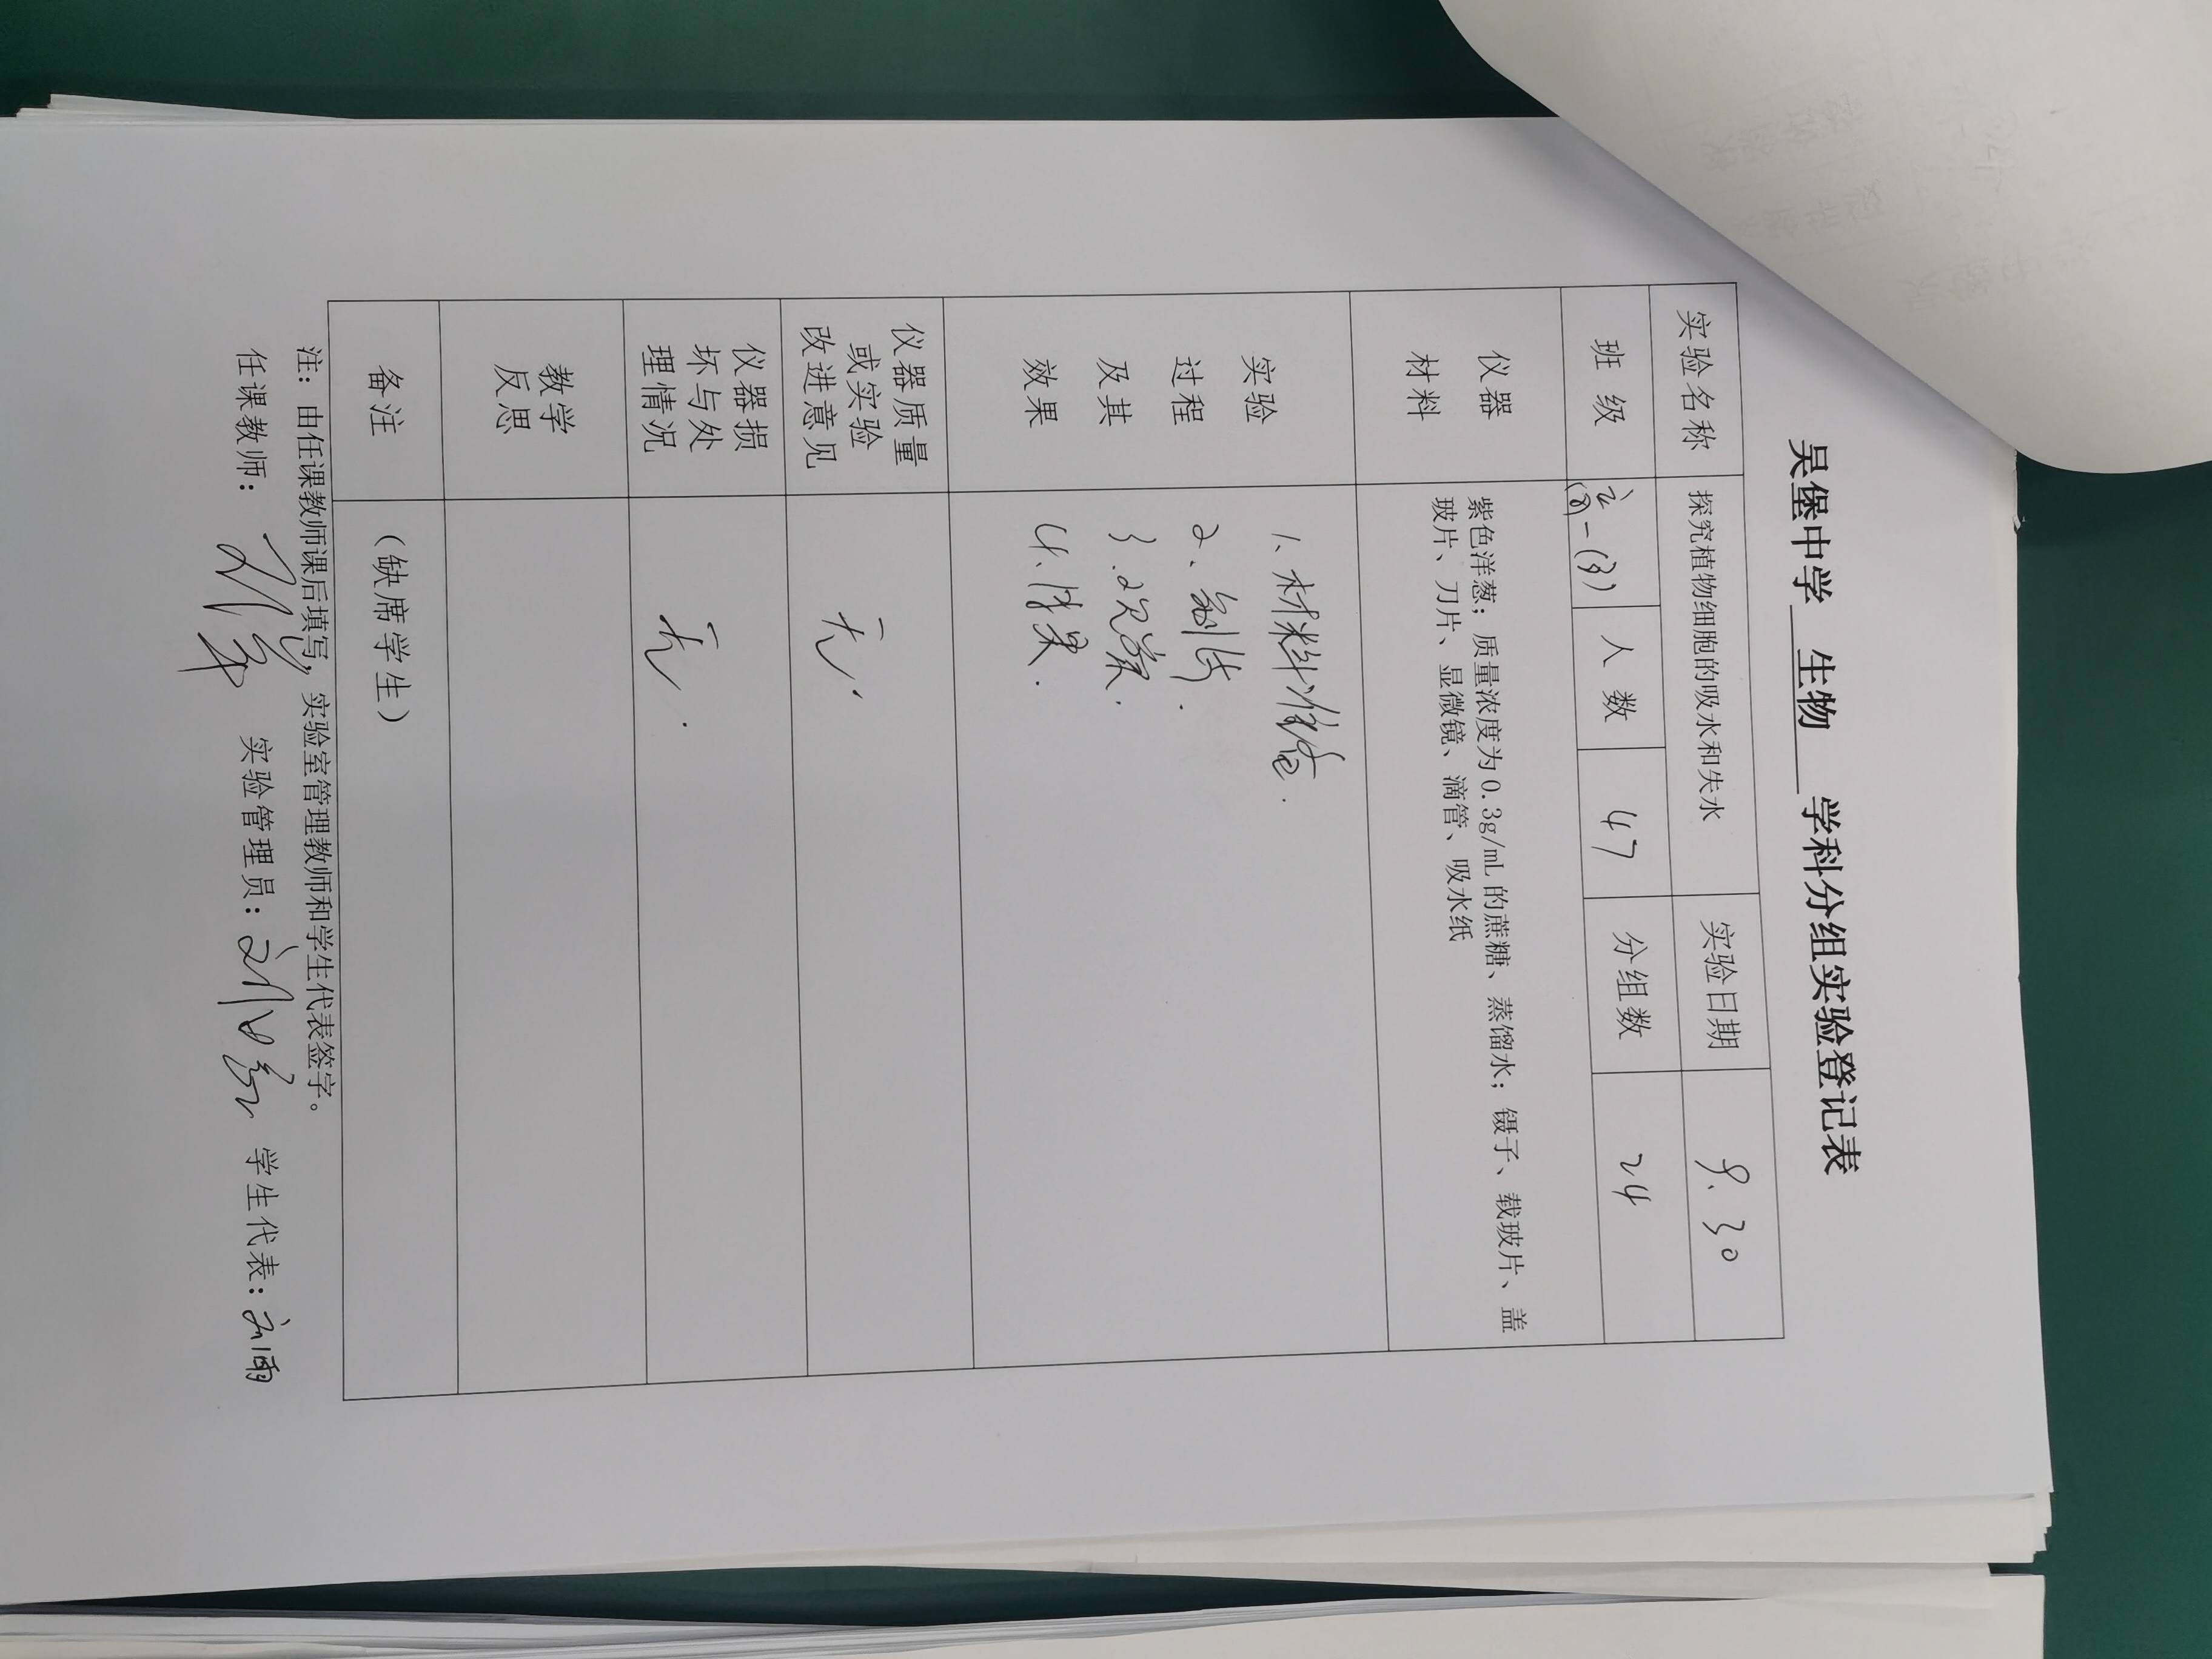 吴堡中学 生物 学科分组实验登记表
实验名称 探究植物细胞的吸水和失水 实验日期 9.30
班级 高一(3) 人数 47 分组数 24
仪器
材料
紫色洋葱；质量浓度为0.3g/mL的蔗糖、蒸馏水；镊子、载玻片、盖
玻片、刀片、显微镜、滴管、吸水纸
实验
过程
及其
效果
1、材料准备.
2、制片.
3.观察.
4.结果.
仪器质量
或实验
改进意见
无.
仪器损
坏与处
理情况
无.
教学
反思
备注 （缺席学生）
注：由任课教师课后填写，实验室管理教师和学生代表签字。
任课教师： 实验管理员： 学生代表：